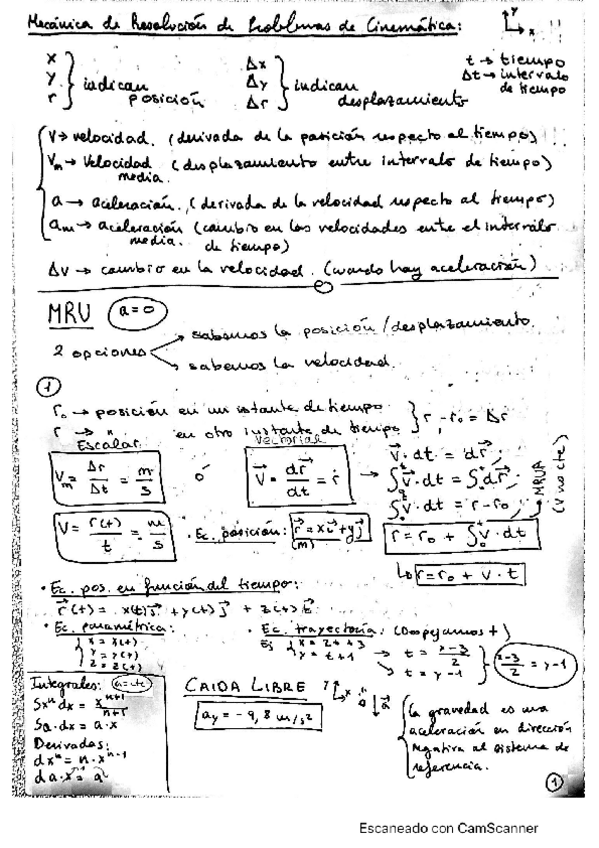 Mecánica de Resolución de Problemas de Cinemática:
y
x
x
y } indican posición
r
Δx
Δy } indican desplazamiento
Δr
t → tiempo
Δt → intervalo de tiempo
V → velocidad. (derivada de la posición respecto al tiempo)
Vm → Velocidad media (desplazamiento entre intervalo de tiempo)
a → aceleración. (derivada de la velocidad respecto al tiempo)
am → aceleración media. (cambio en las velocidades entre el intervalo de tiempo)
Δv → cambio en la velocidad. (cuando hay aceleración)
MRU (a=0)
2 opciones
→ sabemos la posición/desplazamiento.
→ sabemos la velocidad.
①
r₀ → posición en un istante de tiempo
r → " en otro instante de tiempo } r - r₀ = Δr
Escalar
Vectorial
Vm = Δr/Δt = m/s
ó
V⃗ = dr⃗/dt = ṙ
→ V⃗·dt = dr⃗;
∫₀ᵗ V⃗·dt = ∫₀ᵗ dr⃗;
∫₀ᵗ V·dt = r - r₀;
r = r₀ + ∫₀ᵗ V·dt
→ MRUA (V no cte)
↳ r = r₀ + v·t
V = r(t)/t = m/s
• Ec. posición: r⃗ = xi⃗ + yj⃗
(m)
• Ec. pos. en función del tiempo:
r⃗(t) = x(t)i⃗ + y(t)j⃗ + z(t)k⃗
• Ec. paramétrica:
{ x = x(t)
y = y(t)
z = z(t)
• Ec. trayectoria: (Despejamos t)
Ej { x = 2t+3
y = t+1
→ t = x-3/2
→ t = y-1
} x-3/2 = y-1
Integrales: (a=cte)
∫xⁿdx = xⁿ⁺¹/n+1
∫a·dx = a·x
Derivadas:
dxⁿ = n·xⁿ⁻¹
da·x = a
CAIDA LIBRE
ay = -9,8 m/s²
y
x
La gravedad es una
aceleración en dirección
negativa al sistema de
referencia.
①
Escaneado con CamScanner